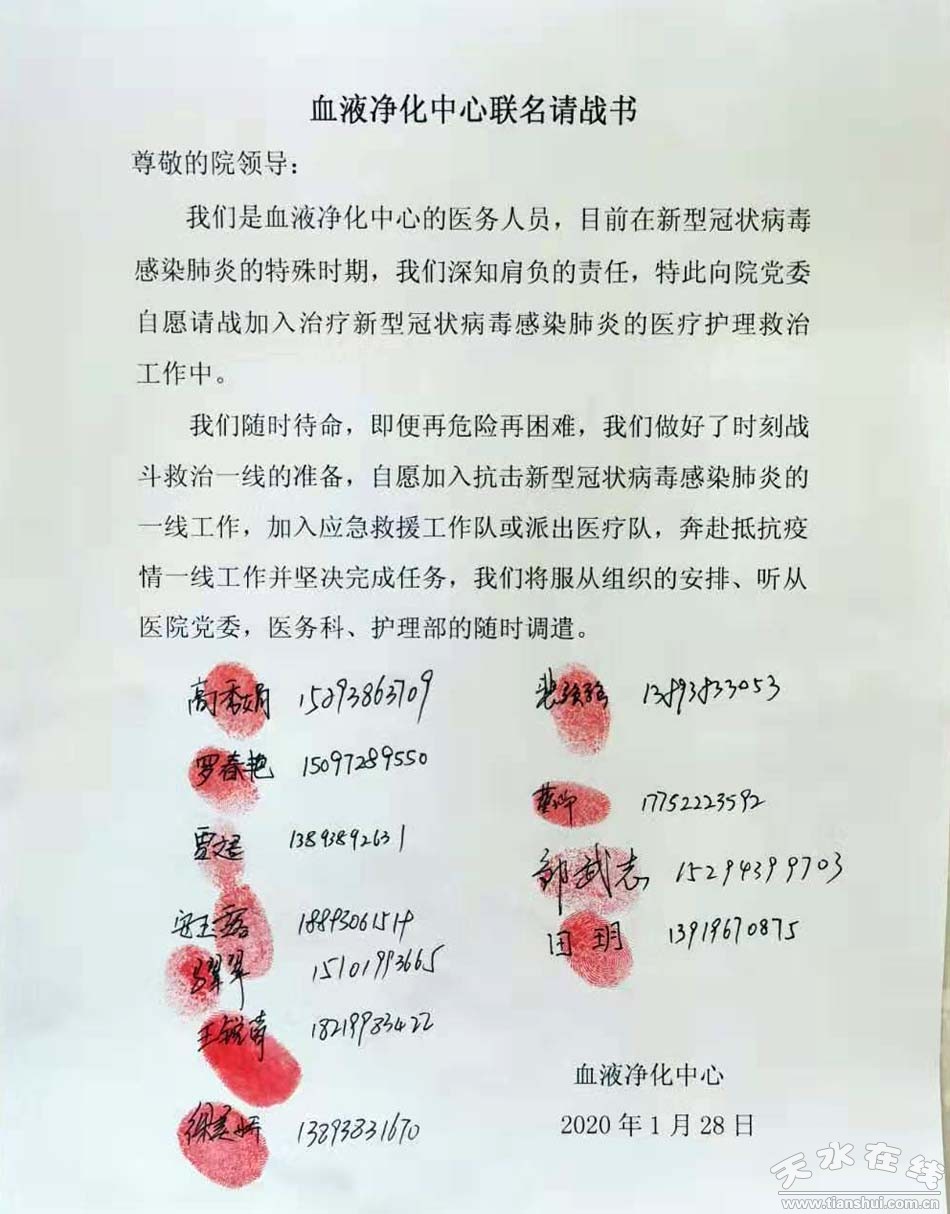 血液净化中心联名请战书
尊敬的院领导：
我们是血液净化中心的医务人员，目前在新型冠状病毒
感染肺炎的特殊时期，我们深知肩负的责任，特此向院党委
自愿请战加入治疗新型冠状病毒感染肺炎的医疗护理救治
工作中。
我们随时待命，即便再危险再困难，我们做好了时刻战
斗救治一线的准备，自愿加入抗击新型冠状病毒感染肺炎的
一线工作，加入应急救援工作队或派出医疗队，奔赴抵抗疫
情一线工作并坚决完成任务，我们将服从组织的安排、听从
医院党委，医务科、护理部的随时调遣。
高秀娟 15293863709
13893833053
罗春艳 15097289550
17752223592
13893892631
邹武志 15294399703
18893061514
田玥 13919670875
马翠翠 15101993665
18219983422
13893831670
血液净化中心
2020 年 1 月 28 日
天水在线
www.tianshui.com.cn